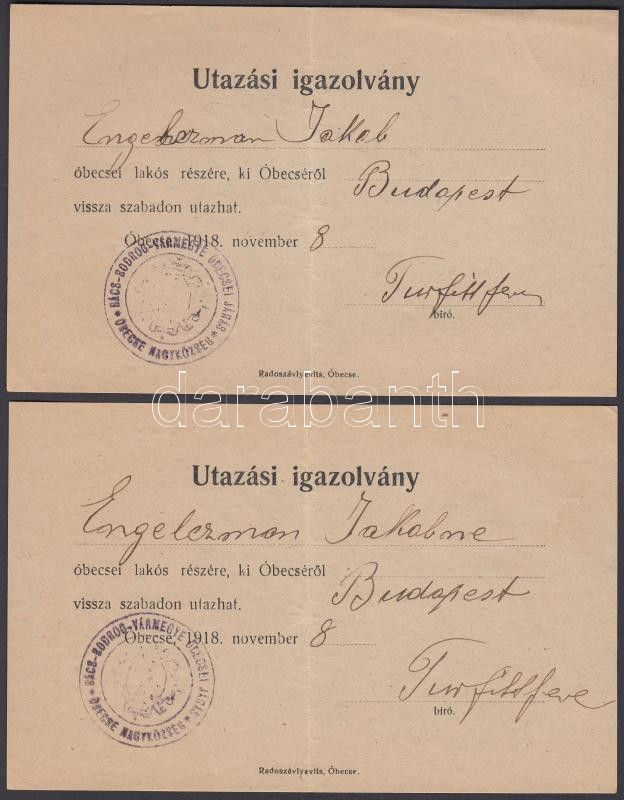 Utazási igazolvány
Engelezman Jakab
óbecsei lakós részére, ki Óbecséről
Budapest
vissza szabadon utazhat.
Óbecse, 1918. november 8
BÁCS-BODROG-VÁRMEGYE ÓBECSEI JÁRÁS
* ÓBECSE NAGYKÖZSÉG *
biró.
Radoszávlyevits, Óbecse.
darabanth
Utazási igazolvány
Engelezman Jakabne
óbecsei lakós részére, ki Óbecséről
Budapest
vissza szabadon utazhat.
Óbecse, 1918. november 8
BÁCS-BODROG-VÁRMEGYE ÓBECSEI JÁRÁS
* ÓBECSE NAGYKÖZSÉG *
biró.
Radoszávlyevits, Óbecse.